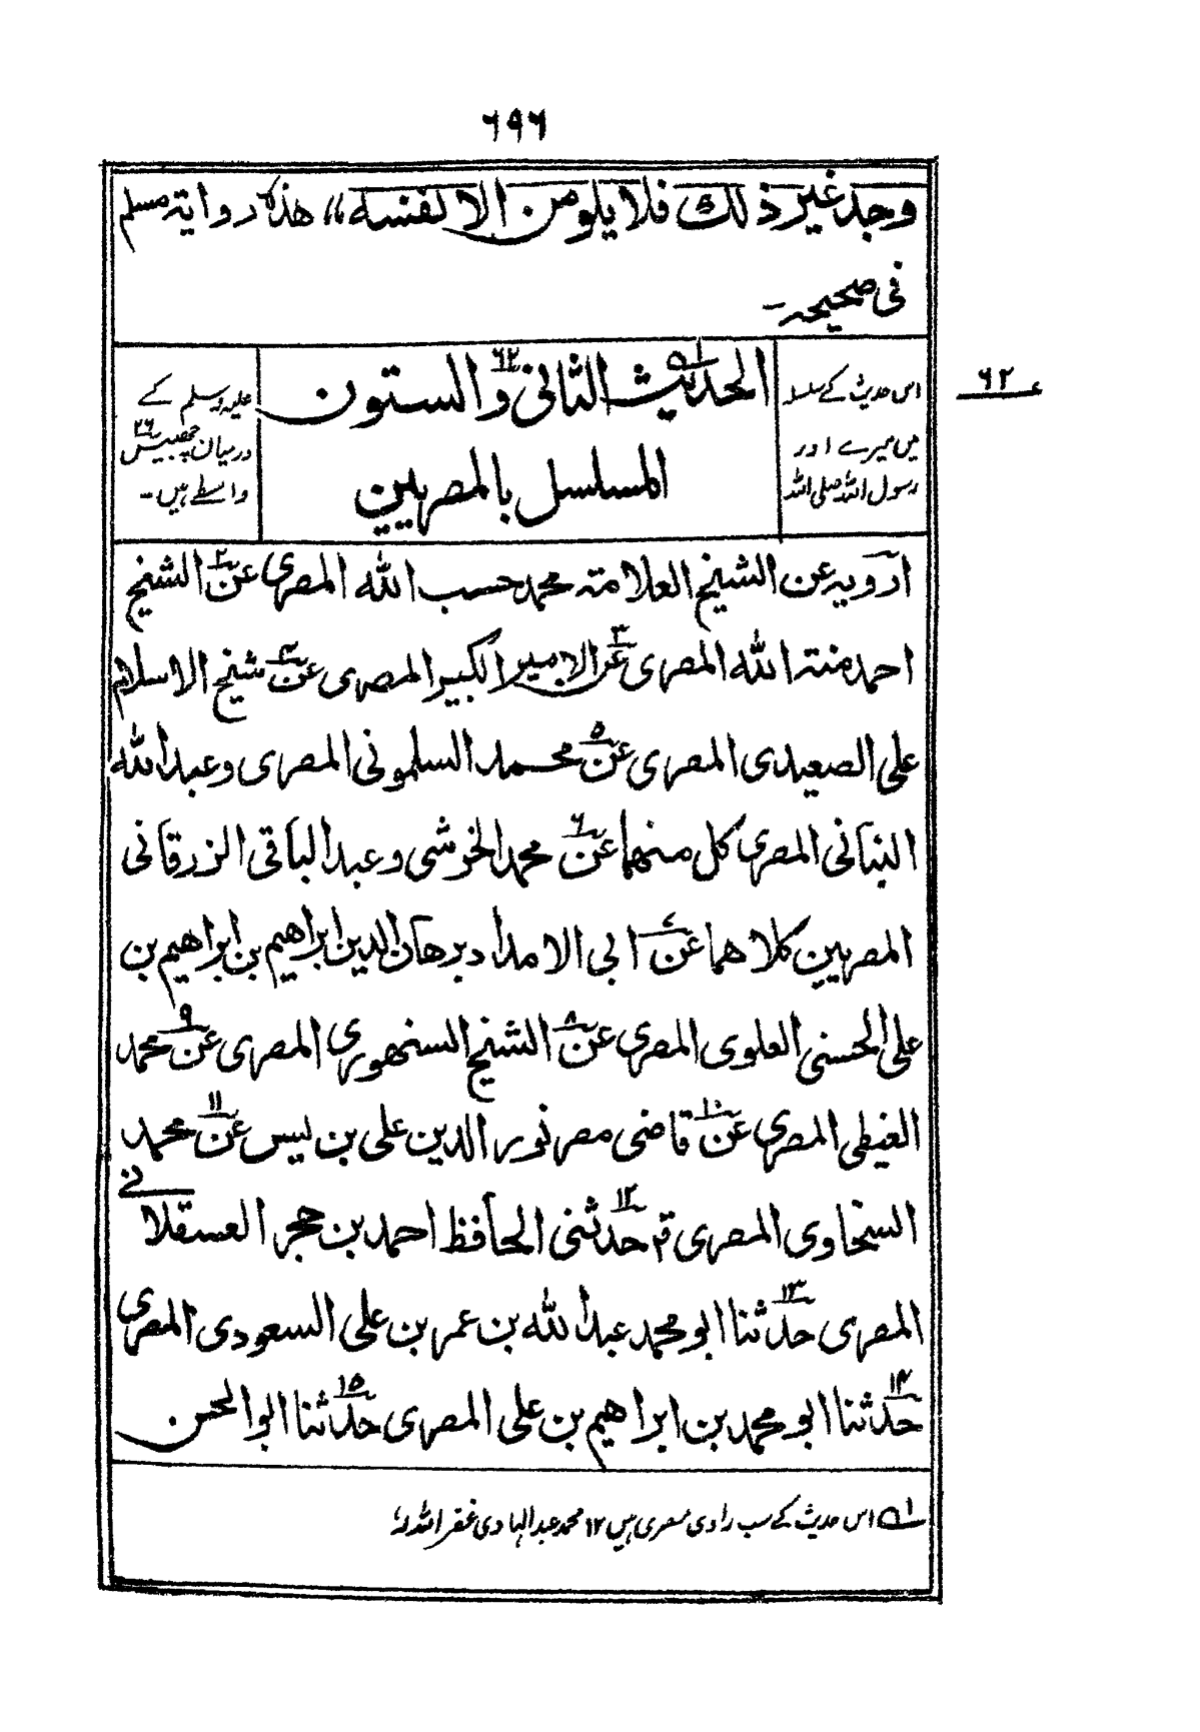 ٦٩٦
وجد غير ذلك فلا يلومن الا لفنسه ،، هذا رواية مسلم
فى صحيحه۔
٦٢
اس حدیث کے سلسلہ
میں میرے اور
رسول اللہ صلی اللہ
الحديث الثانى والستون ٦٢
المسلسل بالمصريين
علیہ وسلم کے
درمیان چھبیس ٢٦
واسطے ہیں۔
ارويه عن الشيخ العلامته محمد حسب الله المصرى عن ٢ الشيخ
احمد منته الله المصرى عن ٣ الامير الكبير المصرى عن ٤ شيخ الاسلام
على الصعيدى المصرى عن ٥ محمد السلمونى المصرى وعبد الله
البنانى المصرى كل منهما عن ٦ محمد الخرشى وعبد الباقى الزرقانى
المصريين كلاهما عن ٧ ابى الامداد برهان الدين ابراهيم بن ابراهيم بن
على الحسنى العلوى المصرى عن ٨ الشيخ السنهورى المصرى عن ٩ محمد
الغيطى المصرى عن ١٠ قاضى مصر نور الدين على بن يٰس عن ١١ محمد
السخاوى المصرى قم حدثنى ١٢ الحافظ احمد بن حجر العسقلانے
المصرى حدثنا ١٣ ابو محمد عبد الله بن عمر بن على السعودى المصرى
حدثنا ١٤ ابو محمد بن ابراهيم بن على المصرى حدثنا ١٥ ابو الحسن
١ھ اس حدیث کے سب راوی مصری ہیں ١٢ محمد عبد الہادی غفر اللہ لہٗ